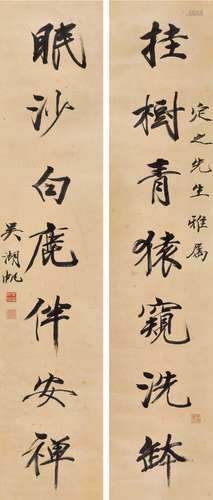 挂樹青猿窺洗缽
定之先生雅属
眠沙白鹿伴安禅
吴湖帆